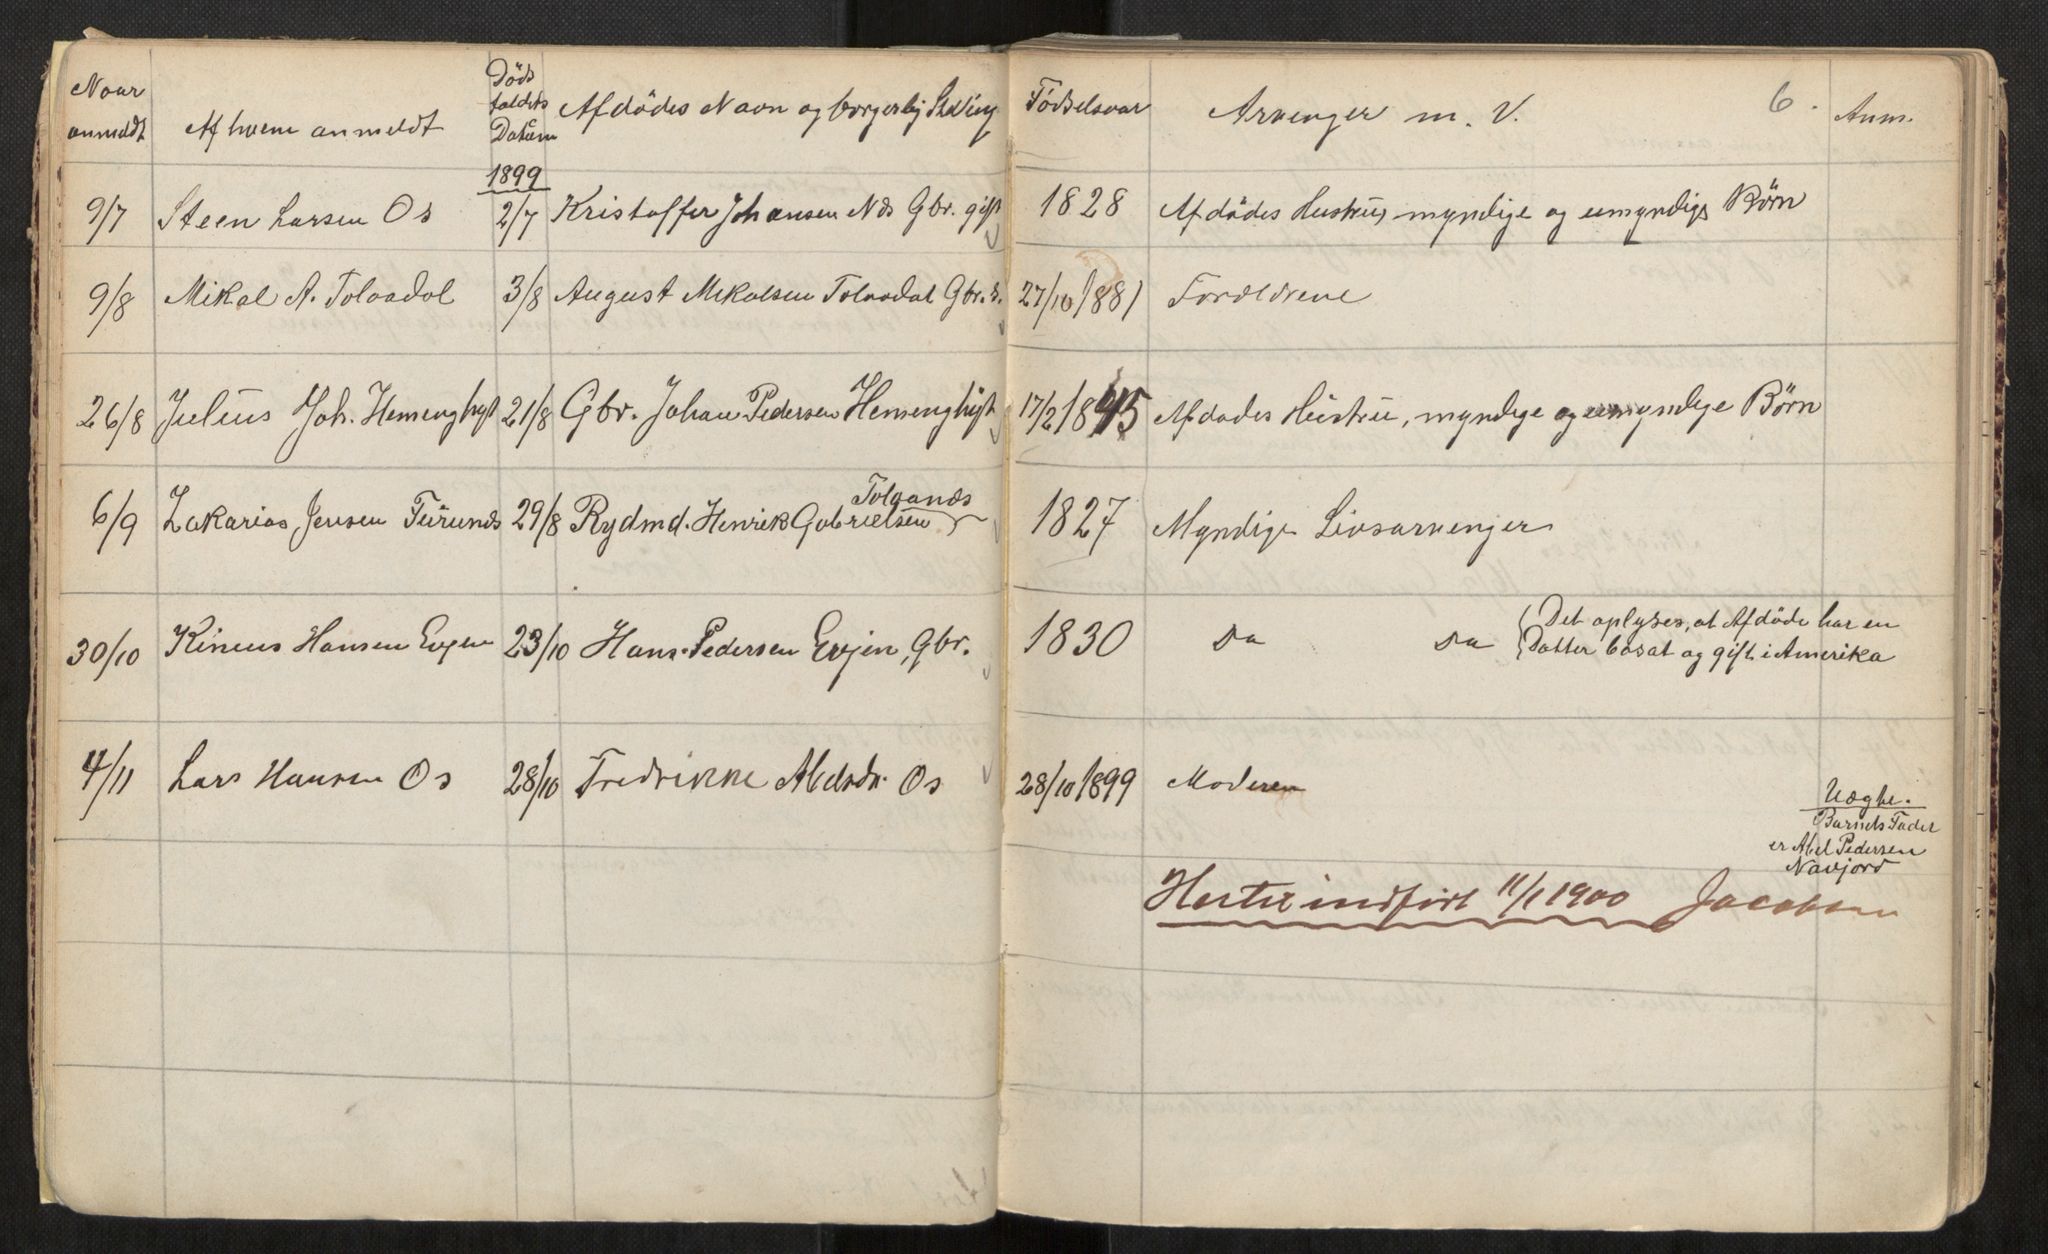 Naar anmeldt | Af hvem anmeldt | Döds faldets Datum | Afdödes Navn og borgerlig Stilling | Födselsaar | Arvinger m. V. | 6. | Anm.
1899
9/7 | Steen Larsen Os | 2/7 | Kristoffer Johansen Næs Gbr. gift | 1828 | Afdödes Hustru, myndige og umyndige Börn
9/8 | Mikal A. Tolaadal | 3/8 | August Mikalsen Tolaadal Gbr.s. | 27/10 1881 | Forældrene
26/8 | Julius Joh. Hemenghyt | 21/8 | Gbr. Johan Pedersen Hemenghyt | 17/2 1845 | Afdödes Hustru, myndige og umyndige Börn
Tolaanæs
6/9 | Zakarias Jensen Furunæs | 29/8 | Rydmd. Henrik Gabrielsen | 1827 | Myndige Livsarvinger
Det oplyses, at Afdöde har en
30/10 | Kineus Hansen Evjen | 23/10 | Hans Pedersen Evjen, Gbr. | 1830 | Do Do | Datter bosat og gift i Amerika
4/11 | Lars Hansen Os | 28/10 | Fredrikke Abelsdr. Os | 28/10 1899 | Moderen
Uægte.
Barnets Fader
er Abel Pedersen
Navjord
Hertil indfört 11/1 1900 Jacobsen